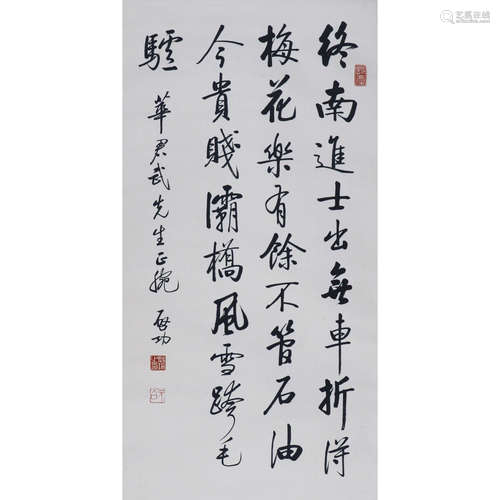 终南進士出無車折得
梅花樂有餘不管石油
今貴賤灞橋風雪跨毛
驢
華君武先生正腕 啟功